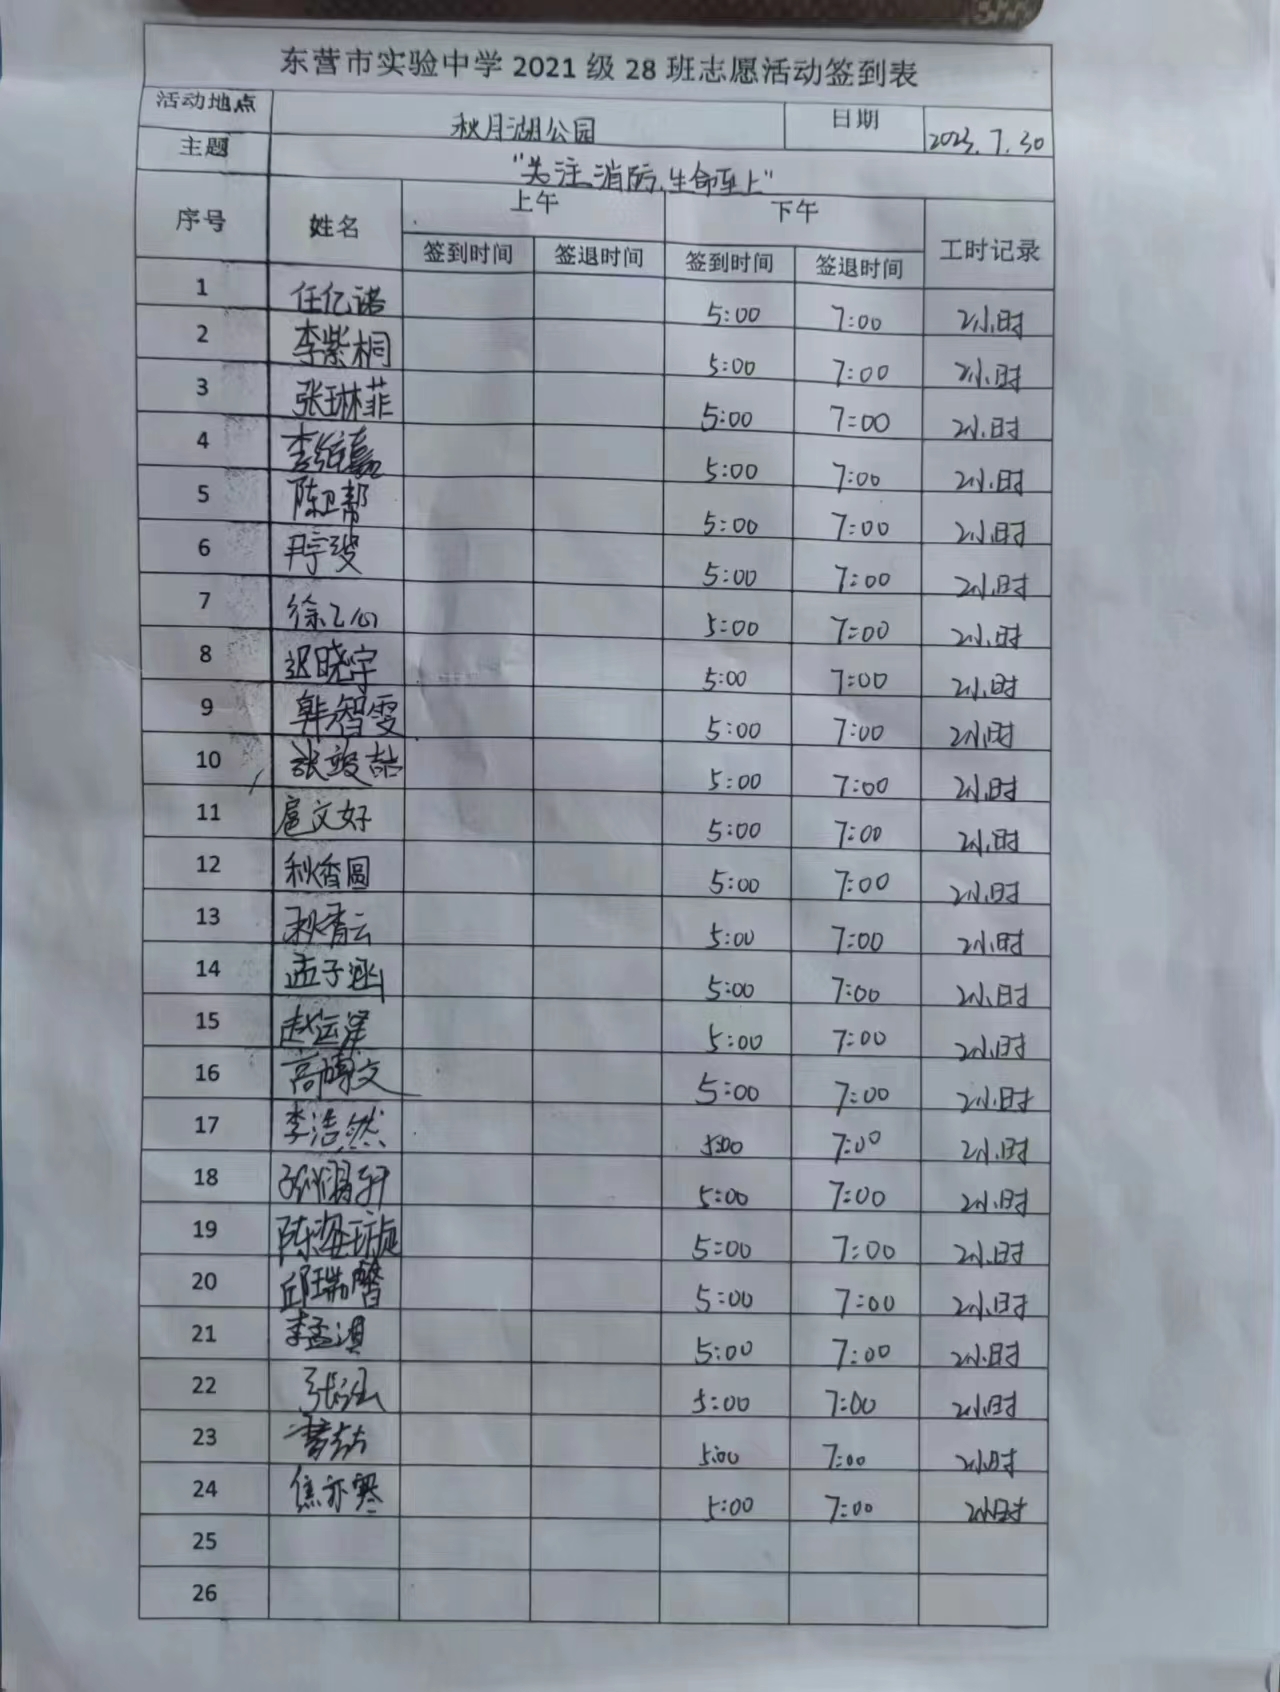 东营市实验中学 2021 级 28 班志愿活动签到表
活动地点 秋月湖公园 日期 2023.7.30
主题 "关注消防,生命至上"
序号 姓名 上午 下午 工时记录
签到时间 签退时间 签到时间 签退时间
1 任亿诺 5:00 7:00 2小时
2 李紫桐 5:00 7:00 2小时
3 张琳菲 5:00 7:00 2小时
4 5:00 7:00 2小时
5 陈卫帮 5:00 7:00 2小时
6 5:00 7:00 2小时
7 徐乙心 5:00 7:00 2小时
8 迟晓宇 5:00 7:00 2小时
9 韩智雯 5:00 7:00 2小时
10 张竣喆 5:00 7:00 2小时
11 扈文好 5:00 7:00 2小时
12 秋香圆 5:00 7:00 2小时
13 秋香云 5:00 7:00 2小时
14 孟子涵 5:00 7:00 2小时
15 5:00 7:00 2小时
16 高博文 5:00 7:00 2小时
17 李浩然 5:00 7:00 2小时
18 5:00 7:00 2小时
19 陈海璇 5:00 7:00 2小时
20 邱瑞馨 5:00 7:00 2小时
21 李孟淇 5:00 7:00 2小时
22 5:00 7:00 2小时
23 5:00 7:00 2小时
24 焦亦寒 5:00 7:00 2小时
25
26